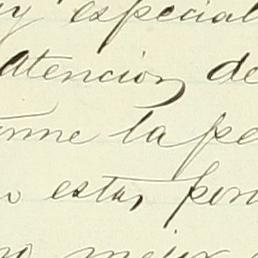 y especial
atencion de
me la pe
estas per
mejor